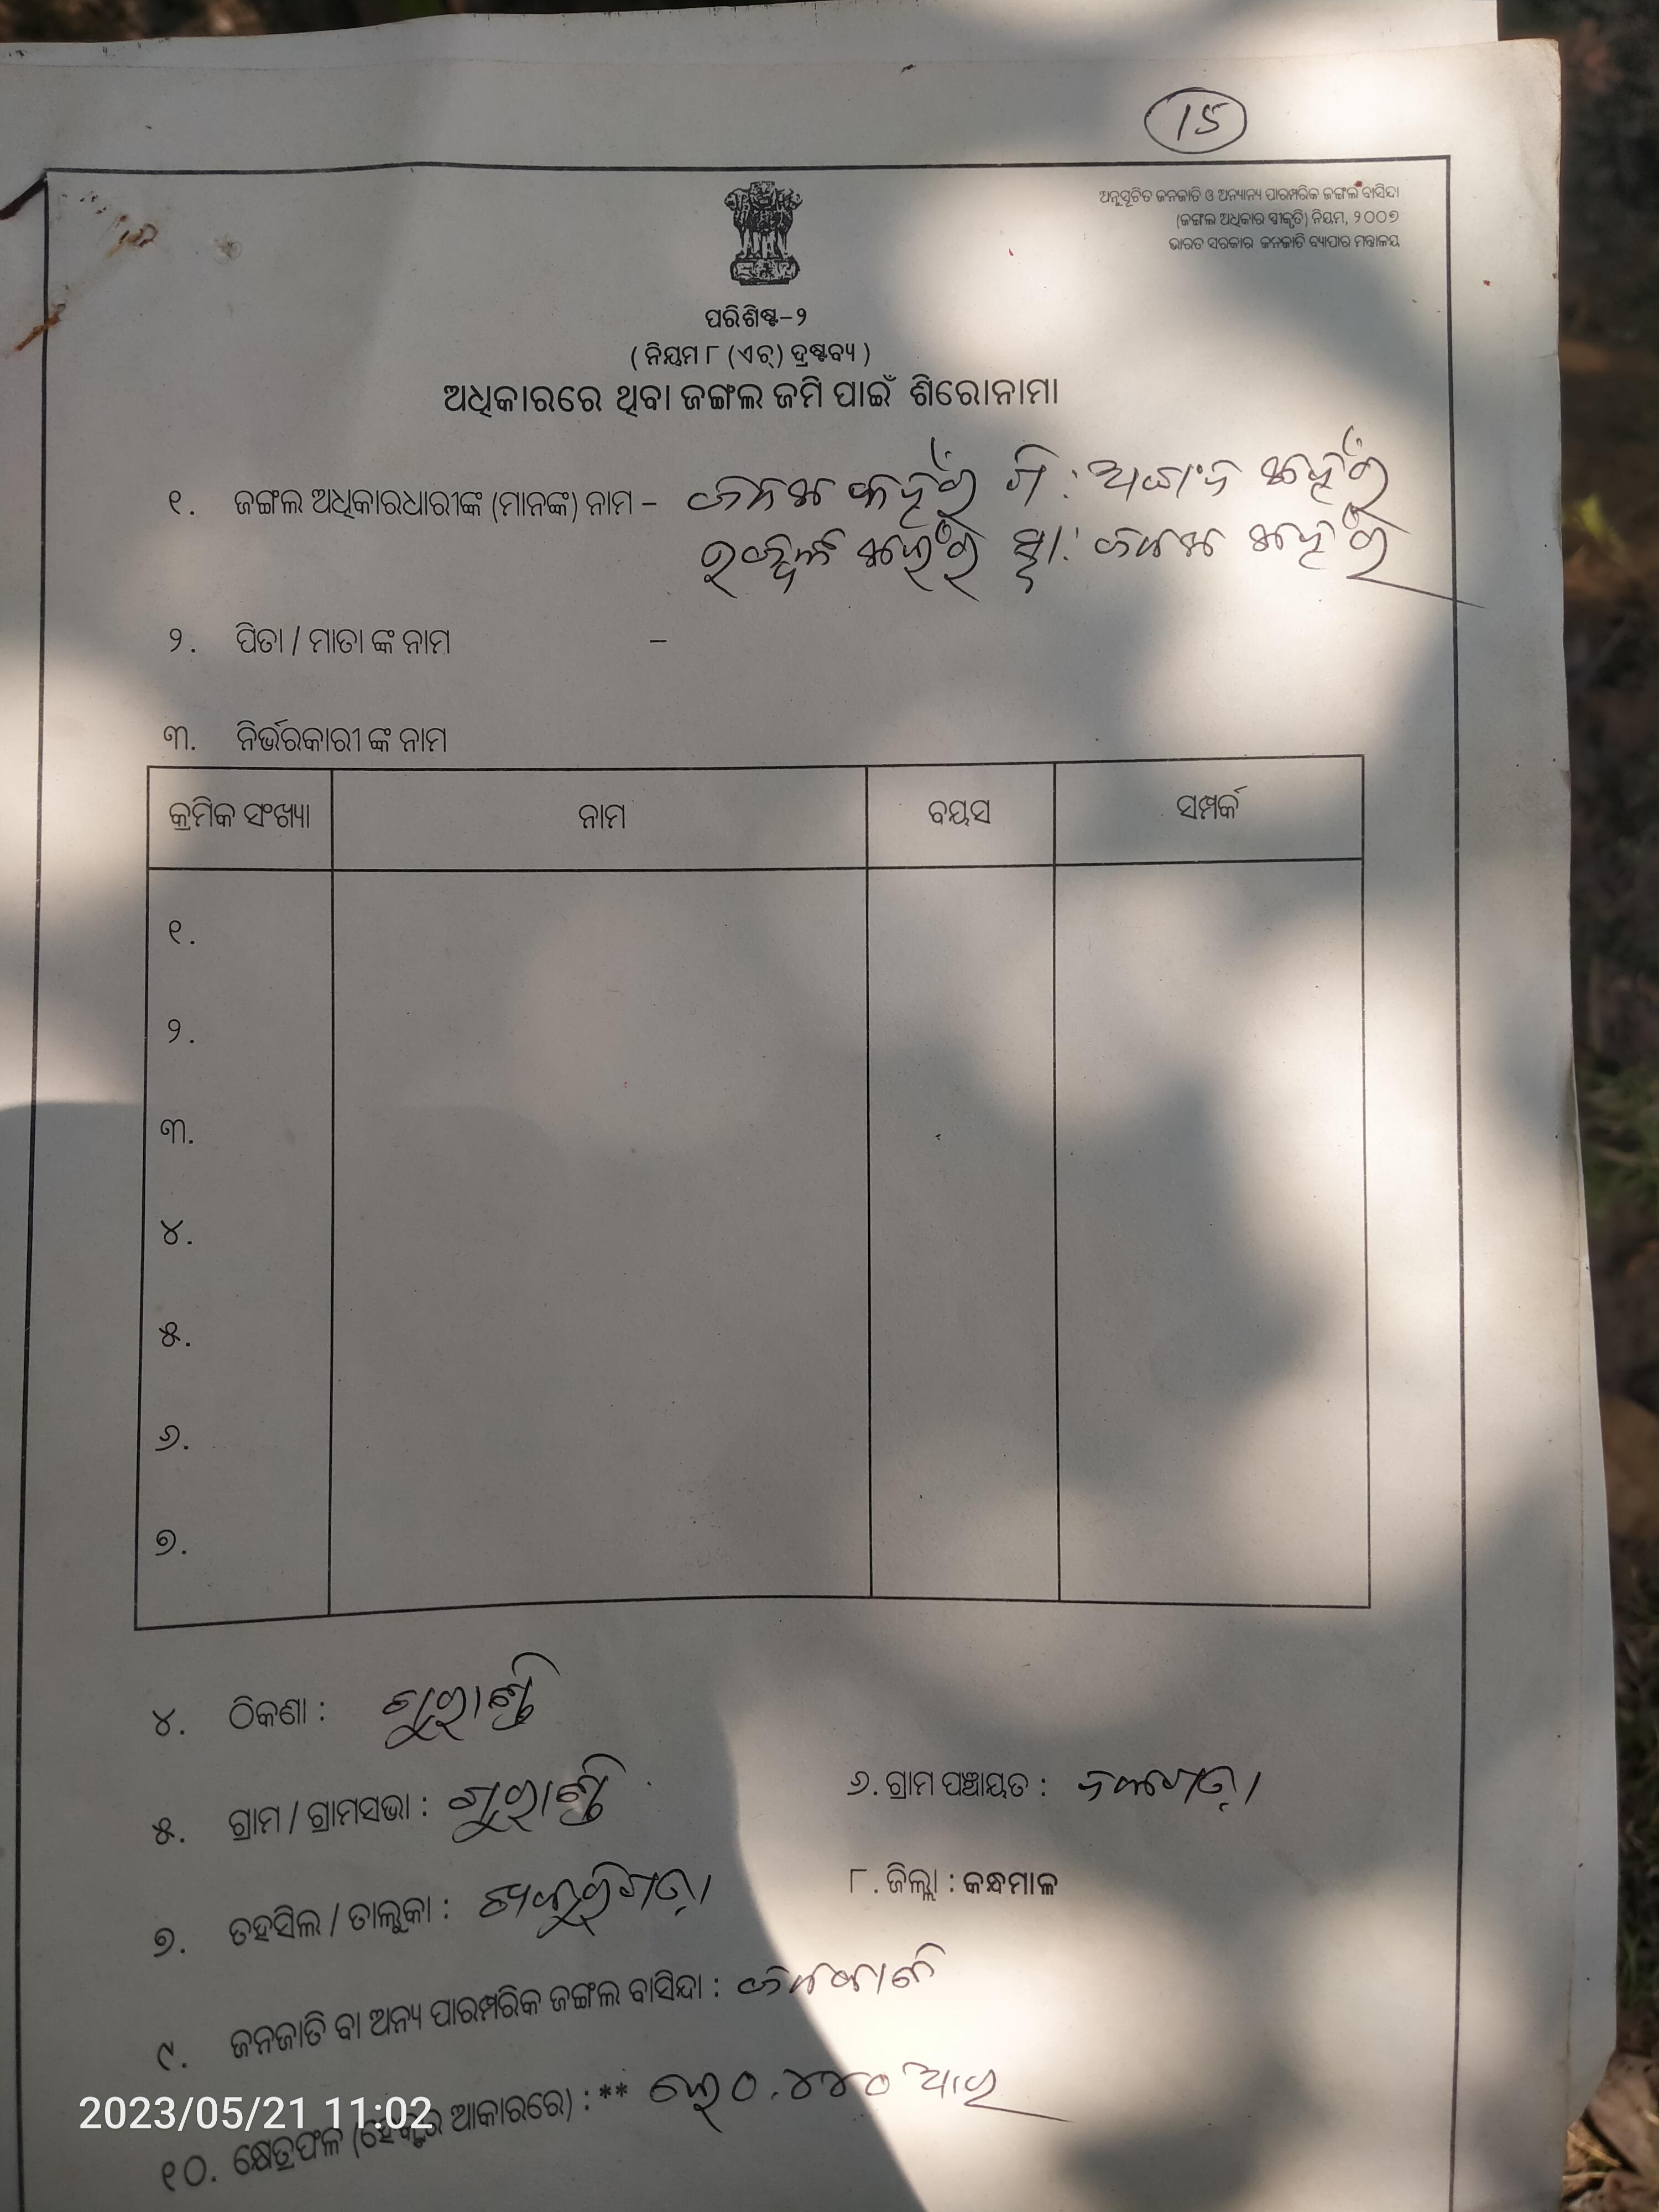 15
ଅନୁସୂଚିତ ଜନଜାତି ଓ ଅନ୍ୟାନ୍ୟ ପାରମ୍ପରିକ ଜଙ୍ଗଲ ବାସିନ୍ଦା
(ଜଙ୍ଗଲ ଅଧିକାର ସ୍ୱୀକୃତି) ନିୟମ, ୨୦୦୭
ଭାରତ ସରକାର ଜନଜାତି ବ୍ୟାପାର ମନ୍ତ୍ରାଳୟ
ପରିଶିଷ୍ଟ–୨
( ନିୟମ ୮ (ଏଚ୍) ଦ୍ରଷ୍ଟବ୍ୟ )
ଅଧିକାରରେ ଥିବା ଜଙ୍ଗଲ ଜମି ପାଇଁ ଶିରୋନାମା
୧. ଜଙ୍ଗଲ ଅଧିକାରଧାରୀଙ୍କ (ମାନଙ୍କ) ନାମ –
୨. ପିତା / ମାତା ଙ୍କ ନାମ –
୩. ନିର୍ଭରକାରୀ ଙ୍କ ନାମ
କ୍ରମିକ ସଂଖ୍ୟା ନାମ ବୟସ ସମ୍ପର୍କ
୧.
୨.
୩.
୪.
୫.
୬.
୭.
୪. ଠିକଣା :
୫. ଗ୍ରାମ / ଗ୍ରାମସଭା :
୬. ଗ୍ରାମ ପଞ୍ଚାୟତ :
୭. ତହସିଲ / ତାଲୁକା :
୮. ଜିଲ୍ଲା : କନ୍ଧମାଳ
୯. ଜନଜାତି ବା ଅନ୍ୟ ପାରମ୍ପରିକ ଜଙ୍ଗଲ ବାସିନ୍ଦା : ଜନଜାତି
୧୦. କ୍ଷେତ୍ରଫଳ (ହେକ୍ଟର ଆକାରରେ) : ** ହେ ୦.୪୪୦ ଆର
2023/05/21 11:02